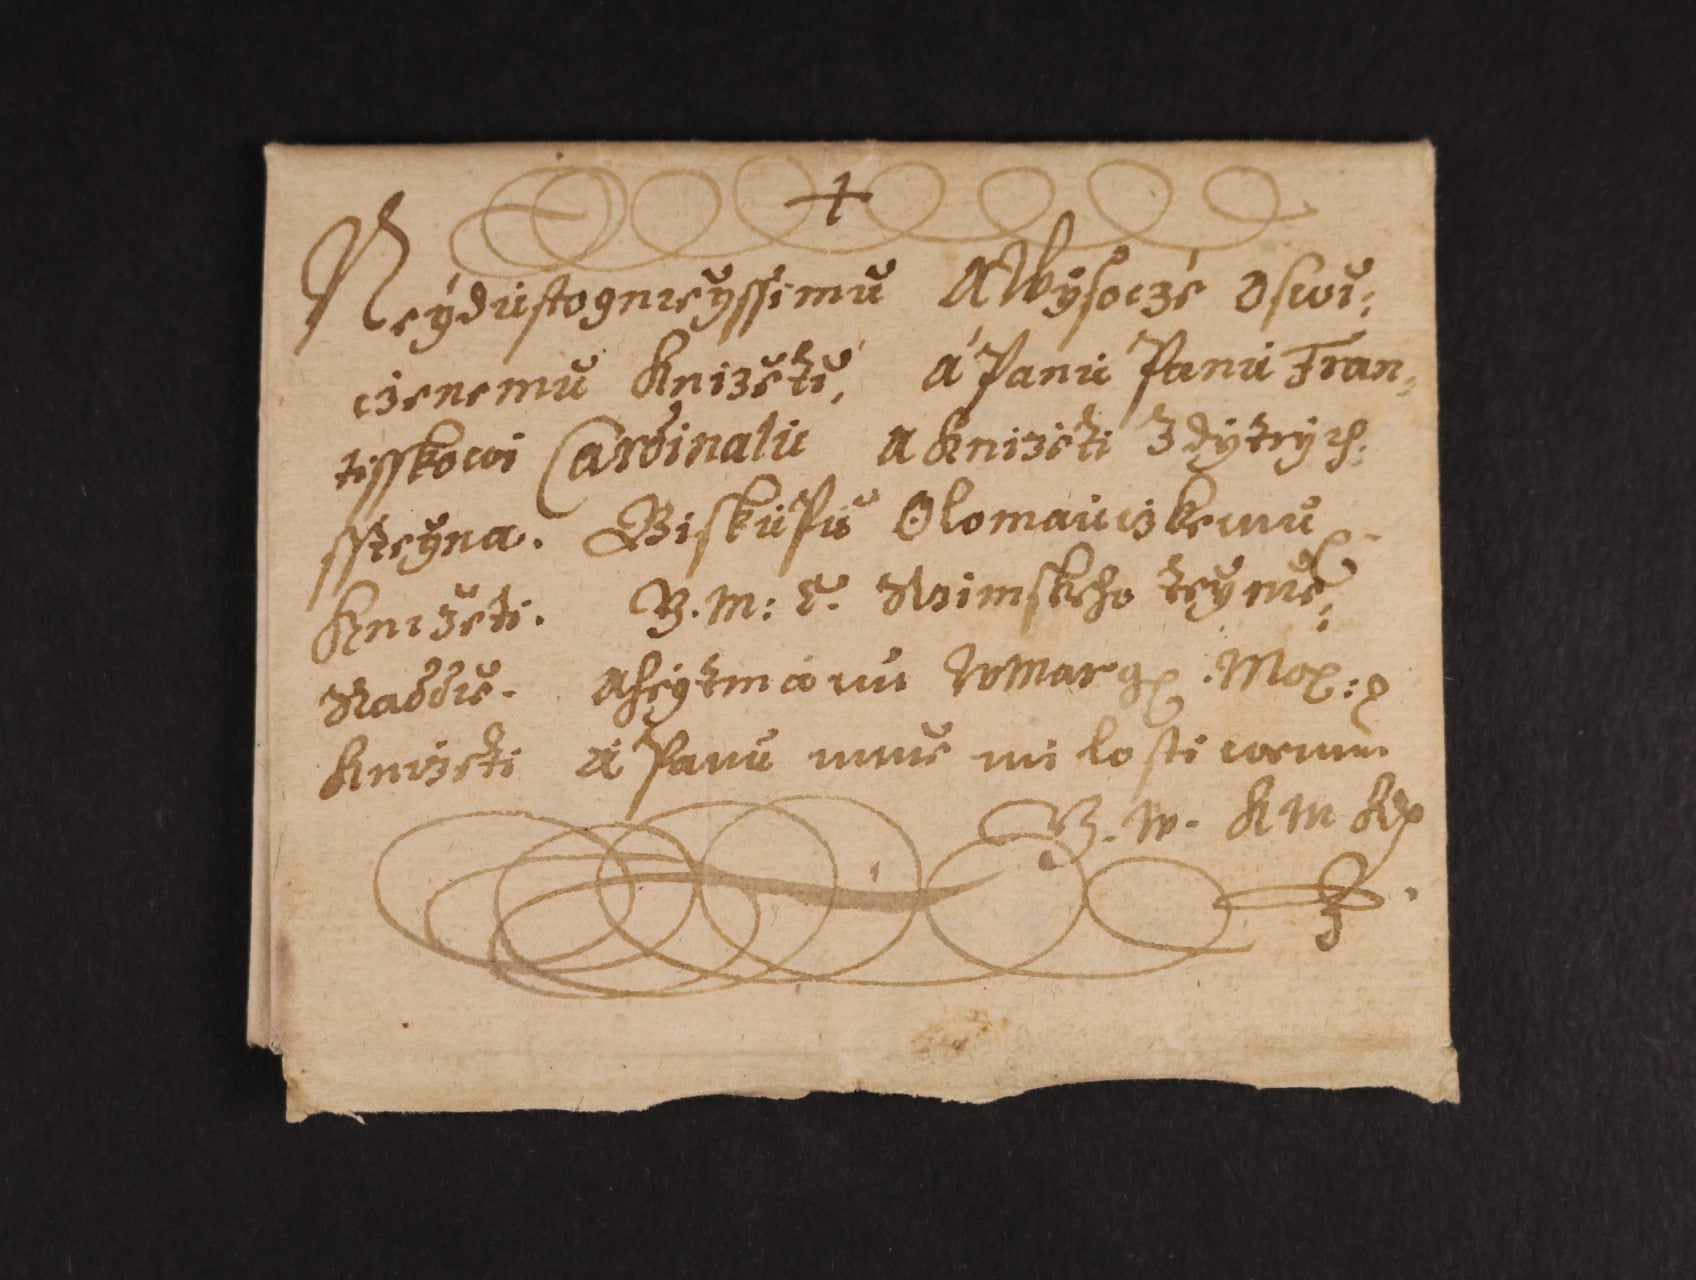 +
Neydustogneyssimu A Wysocze Oswi:
czenemu Knizeti, A Panu Panu Fran,
tisskowi Cardinalu A Knizeti Z Dytrych:
ssteyna. Biskupu Olomauczkemu
Knizeti. G. M: C. Rzimskeho teyne:
Radde. A heytmanu W Marg. Mor:
Knizeti A Panu mne milostiwemu
G. W. K M K